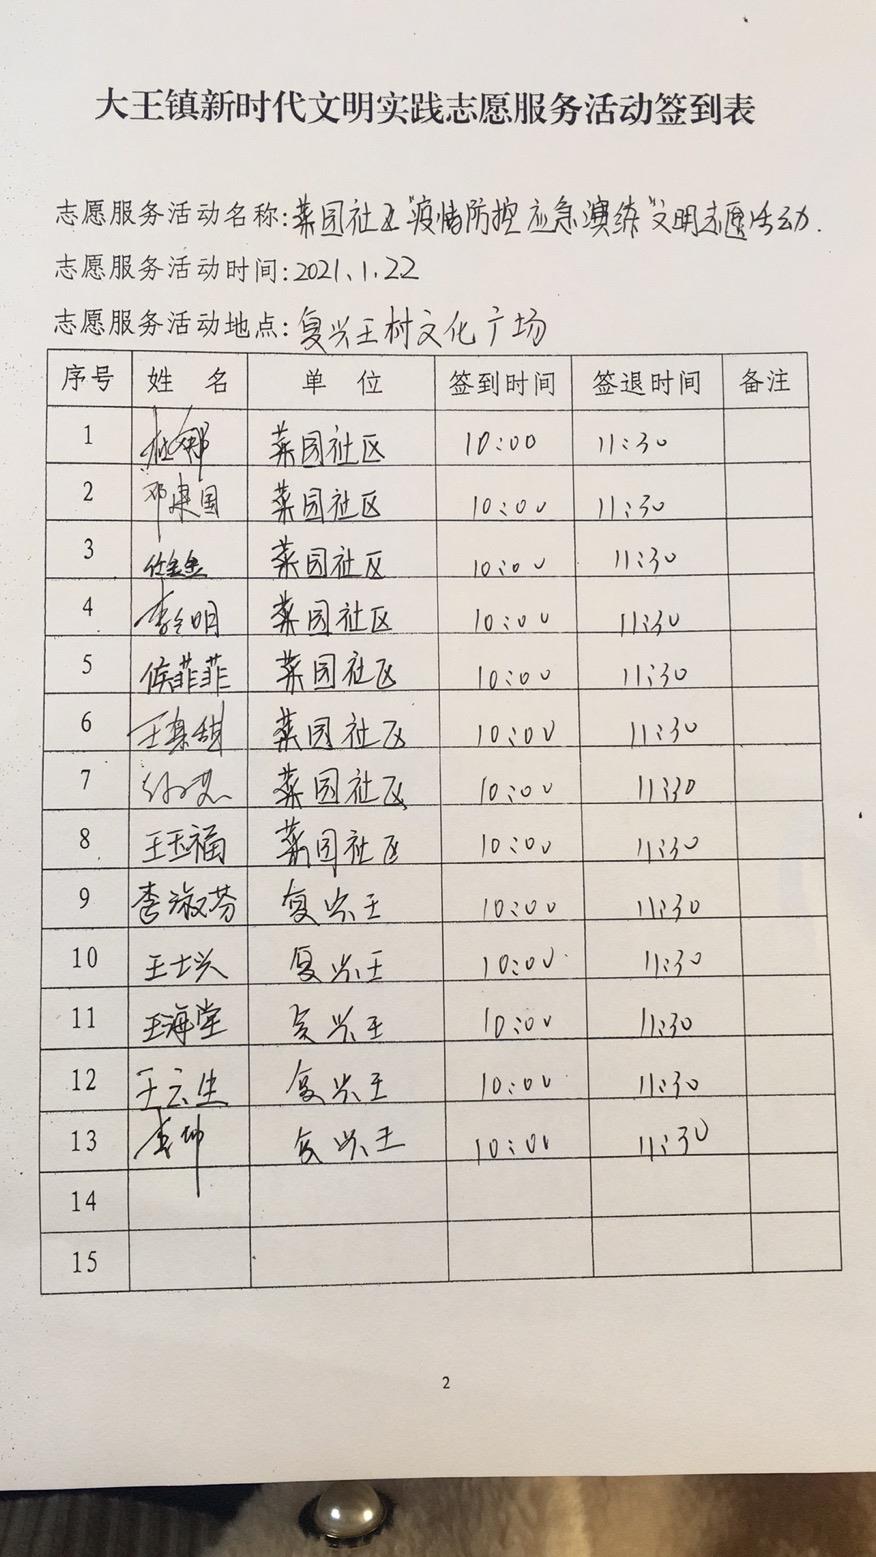 大王镇新时代文明实践志愿服务活动签到表
志愿服务活动名称:菜园社区"疫情防控应急演练"文明志愿活动.
志愿服务活动时间:2021.1.22
志愿服务活动地点:复兴王村文化广场
序号 姓 名 单 位 签到时间 签退时间 备注
1 菜园社区 10:00 11:30
2 邓建国 菜园社区 10:00 11:30
3 菜园社区 10:00 11:30
4 菜园社区 10:00 11:30
5 侯菲菲 菜园社区 10:00 11:30
6 菜园社区 10:00 11:30
7 菜园社区 10:00 11:30
8 王玉福 菜园社区 10:00 11:30
9 李淑芬 复兴王 10:00 11:30
10 王士兴 复兴王 10:00 11:30
11 王海堂 复兴王 10:00 11:30
12 王云生 复兴王 10:00 11:30
13 复兴王 10:00 11:30
14
15
2